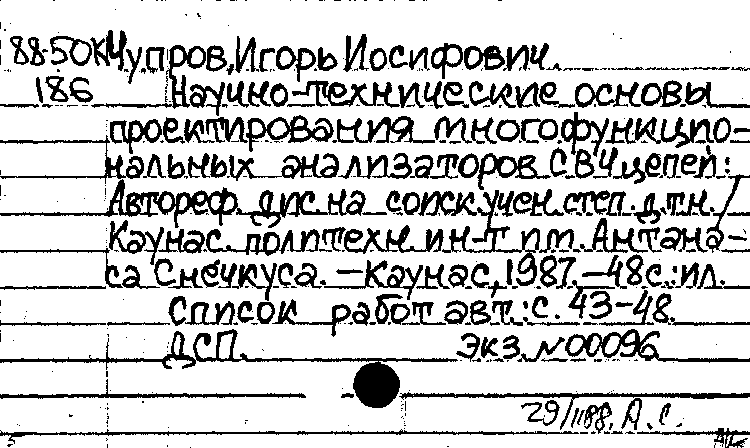 88-50К Чупров, Игорь Иосифович.
186 Научно-технические основы
проектирования многофункцио-
нальных анализаторов СВЧ цепей:
Автореф. дис. на соиск. учен. степ. д.т.н. /
Каунас. политехн. ин-т им. Антана-
са Снечкуса. — Каунас, 1987. — 48с.: ил.
Список работ авт.: с. 43-48.
ДСП. Экз. N00096
29/II88. А.С.